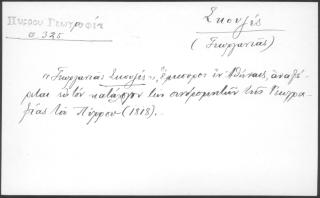 Πύρρου Γεωγραφία
σ 325
Σκουλές
(Γεωργαντάς)
"Γεωργαντάς Σκουλές", ἔμπορος ἐν Ἀθήναις, ἀναφέ-
ρεται εἰς τὸν κατάλογον τῶν συνδρομητῶν τῆς Γεωγρα-
φίας τοῦ Πύρρου (1818).